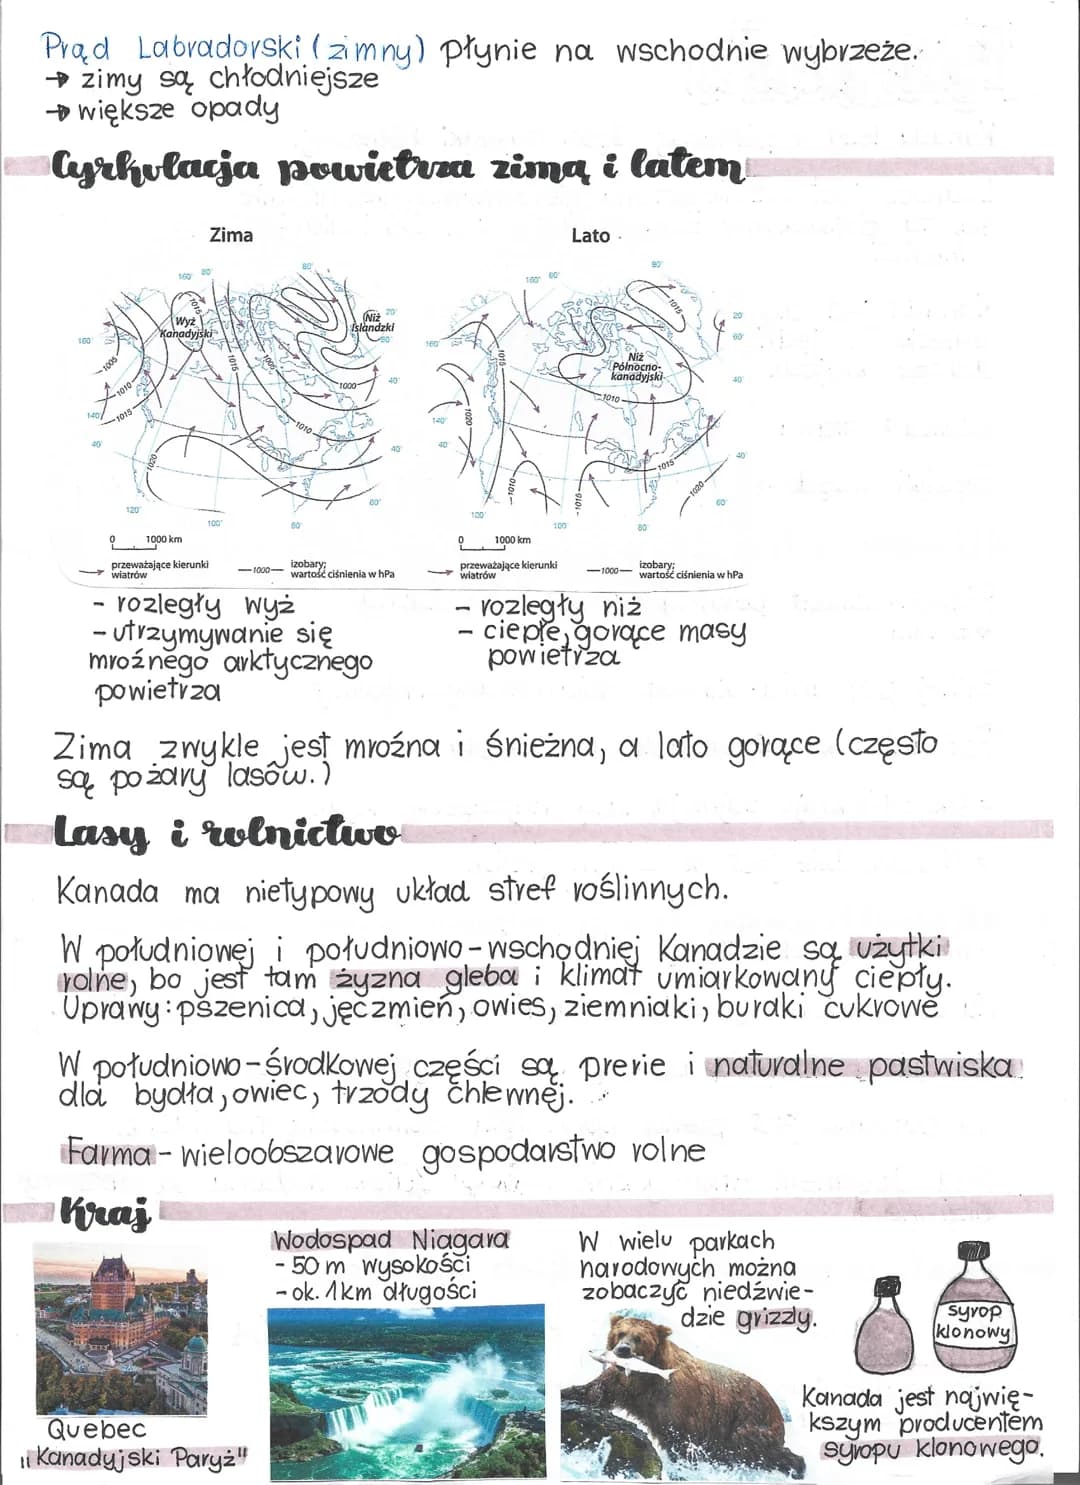 Prąd Labradorski (zimny) płynie na wschodnie wybrzeże.
→ zimy są chłodniejsze
→ większe opady
Cyrkulacja powietrza zimą i latem
Zima
160° 80° 80°
1015
Wyż
Kanadyjski
Niż
Islandzki
20°
60°
160°
1005
1010
1015
1015
1005
1000
1010
1020
40°
140°
40°
40°
120°
100°
80°
60°
0 1000 km
przeważające kierunki
wiatrów
—1000— izobary;
wartość ciśnienia w hPa
Lato
160° 80° 80°
1015
20°
60°
160°
1015
Niż
Północno-
kanadyjski
1010
40°
1020
140°
40°
1015
40°
1010
1015
1020
120°
100°
80°
60°
0 1000 km
przeważające kierunki
wiatrów
—1000— izobary;
wartość ciśnienia w hPa
- rozległy wyż
- utrzymywanie się
mroźnego arktycznego
powietrza
- rozległy niż
- ciepłe, gorące masy
powietrza
Zima zwykle jest mroźna i śnieżna, a lato gorące (często
są pożary lasów.)
Lasy i rolnictwo
Kanada ma nietypowy układ stref roślinnych.
W południowej i południowo-wschodniej Kanadzie są użytki
rolne, bo jest tam żyzna gleba i klimat umiarkowany ciepły.
Uprawy: pszenica, jęczmień, owies, ziemniaki, buraki cukrowe
W południowo-środkowej części są prerie i naturalne pastwiska
dla bydła, owiec, trzody chlewnej.
Farma - wieloobszarowe gospodarstwo rolne
Kraj
Quebec
"Kanadyjski Paryż"
Wodospad Niagara
- 50 m wysokości
- ok. 1km długości
W wielu parkach
narodowych można
zobaczyć niedźwie-
dzie grizzly.
syrop
klonowy
Kanada jest najwię-
kszym producentem
syropu klonowego.